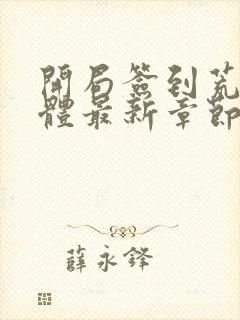 開局簽到荒
體最新章節
薛永鋒